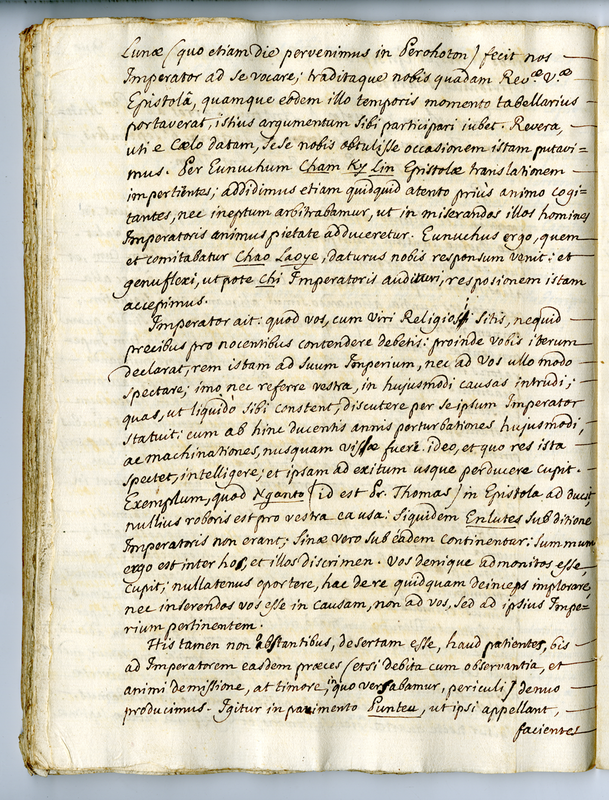 Lunæ (quo etiam die pervenimus in Gerohoton) fecit nos
Imperator ad se vocare; traditaque nobis quâdam Rev.æ V.æ
Epistolâ, quamque eodem illo temporis momento tabellarius
portaverat, istius argumentum sibi participari iubet. Revera,
uti e Cælo datam, sese nobis obtulisse occasionem istam putavi=
mus. Per Eunuchum Cham Ky Lin Epistolæ translationem
impertientes; addidimus etiam quidquid atento priùs animo cogi=
tantes, nec ineptum arbitrabamur, ut in miserandos illos homines
Imperatoris animus pietate adduceretur. Eunuchus ergo, quem
et comitabatur Chao Laoye, daturus nobis responsum venit: et
genuflexi, utpote Chi Imperatoris audituri, resposionem istam
accepimus.
Imperator ait: quod vos, cum viri Religiosi sitis, nequid
precibus pro nocentibus contendere debetis: proinde vobis iterum
declarat, rem istam ad suum Imperium, nec ad vos ullo modo
spectare; imo nec referre vestra, in hujusmodi causas intrudi;
quas, ut liquidò sibi constent, discutere per se ipsum Imperator
statuit: cum ab hinc ducentis annis porturbationes hujusmodi,
ac machinationes, nusquam vissæ fuere. ideo, et quo res ista
spectet, intelligere; et ipsam ad exitum usque perducere cupit.
Exemplum, quod Nganto (id est Pr. Thomas) in Epistola adducit,
nullius roboris est pro vestra causa: Siquidem Enlutes sub ditione
Imperatoris non erant; Sinæ vero sub eadem continentur: summum
ergo est inter hos, et illos discrimen. Vos denique admonitos esse
cupit; nullatenus oportere, hac de re quidquam deinceps implorare,
nec inserendos vos esse in causam, non ad vos, sed ad ipsius Impe=
rium pertinentem.
His tamen non obstantibus, desertam esse, haud patientes, bis
ad Imperatorem easdem præces (etsi debita cum observantia, et
animi demissione, at timore, in quo versabamur, periculi) denuo
producimus. Igitur in pavimento Punteu, ut ipsi appellant,
facientes